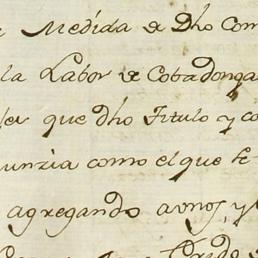 Medida de Dho Com
la Labor de Cobadonga
que Dho Titulo y co
unzia como el que se
agregando aunos, y